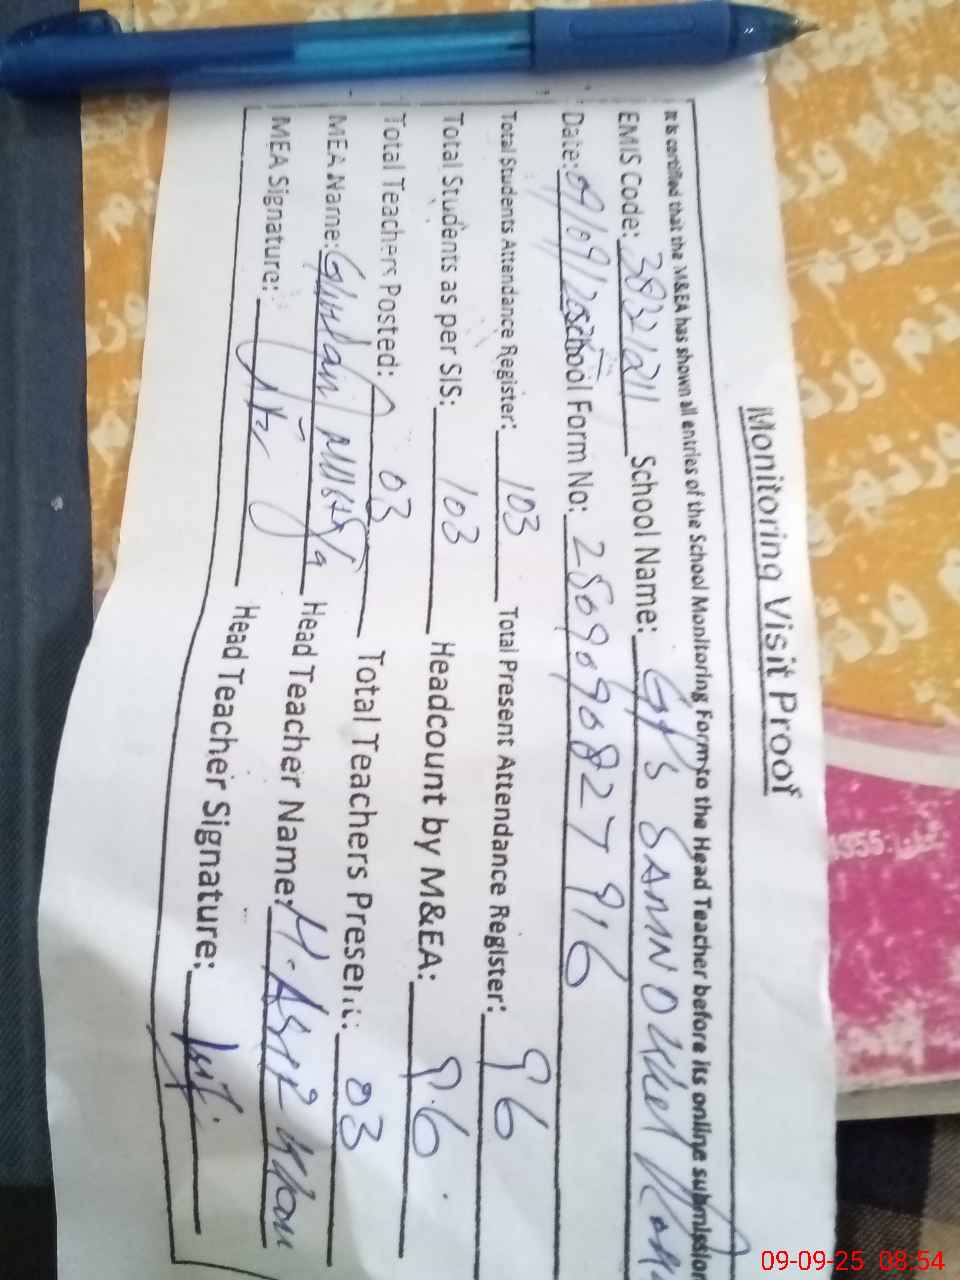 Monitoring Visit Proof
It is certified that the M&EA has shown all entries of the School Monitoring Form to the Head Teacher before its online submission
EMIS Code: 38321211 School Name: GPS
Date: 09/09/2025 School Form No: 2869690827916
Total Students Attendance Register: 103 Total Present Attendance Register: 96
Total Students as per SIS: 103 Headcount by M&EA: 96
Total Teachers Posted: 03 Total Teachers Present: 03
MEA Name: Ghulam Mustafa Head Teacher Name: M. Asif Khan
MEA Signature: Head Teacher Signature:
1355
09-09-25 08:54